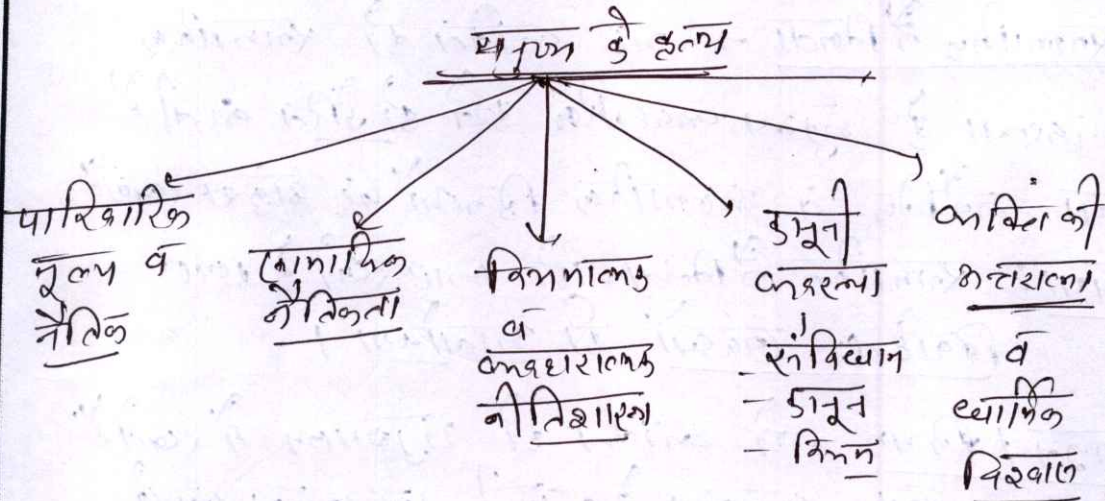 मनुष्य के कृत्य
पारिवारिक
मूल्य व
नैतिक
सामाजिक
नैतिकता
नियमात्मक
व
व्यवहारात्मक
नीतिशास्त्र
कानूनी
व्यवस्था
- संविधान
- कानून
- नियम
व्यक्ति की
अन्तरात्मा
व
धार्मिक
विश्वास